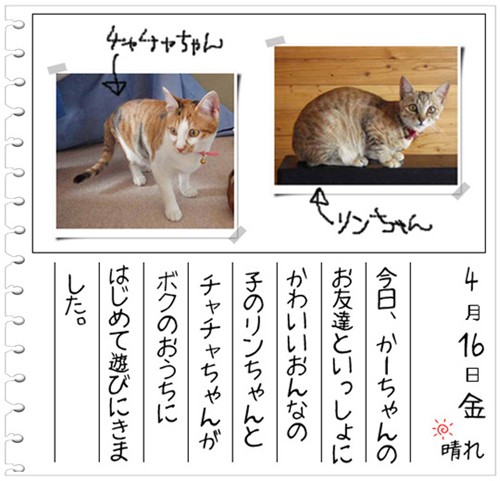 チャチャちゃん
リンちゃん
4月16日金
晴れ
今日、かーちゃんの
お友達といっしょに
かわいいおんなの
子のリンちゃんと
チャチャちゃんが
ボクのおうちに
はじめて遊びにきま
した。